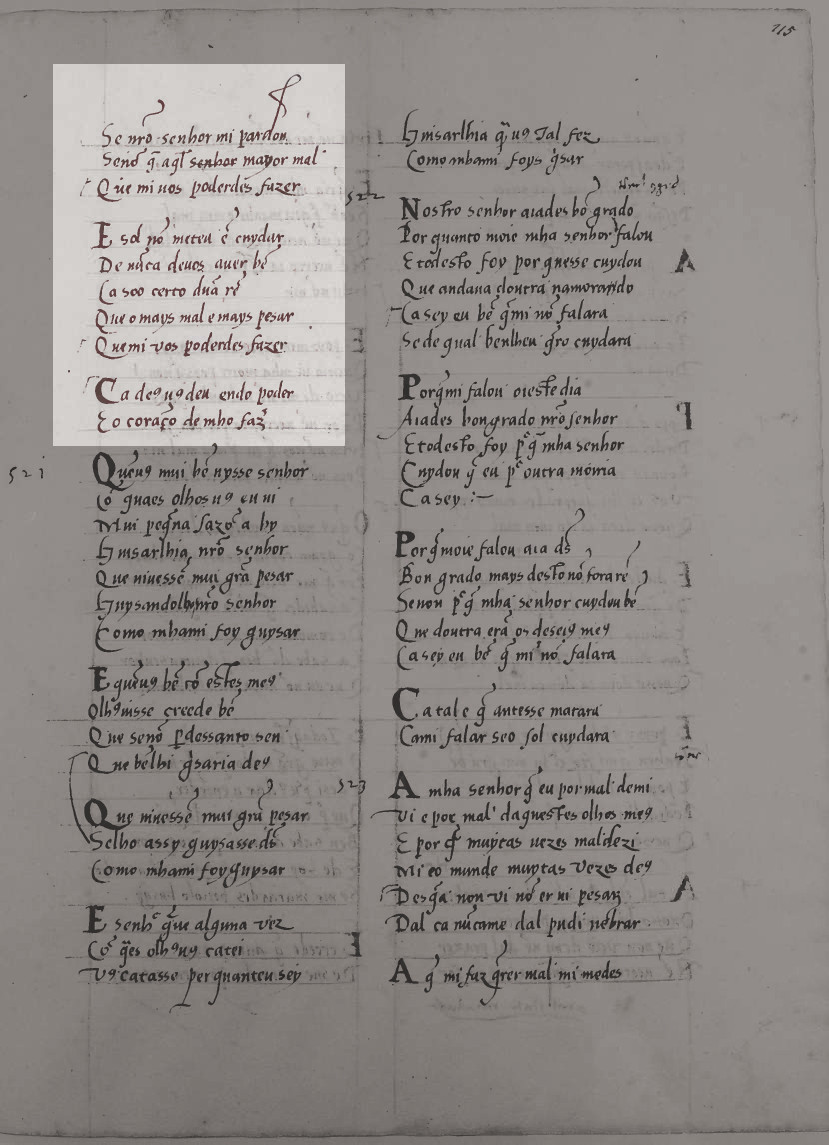 Se nr̃o senhor mi pardon
Senõ q̃ aql̃ senhor mayor mal
Que mi uos poderdes fazer
E sol nõ meteu ẽ cuydar
De nũca deuos auer bẽ
Ca soo certo dũa rẽ
Que o mays mal e mays pesar
Quemi vos poderdes fazer
Ca de9 u9 deu endo poder
E o coraçõ de mho faz̃
521
Quẽu9 mui bẽ uysse senhor
Cõ quaes olhos u9 eu ui
Mui peq̃na sazõ a hy
Guisarlhia nr̃o senhor
Que uiuessẽ mui grã pesar
Guysandolho nr̃o senhor
Como mhami foy guysar
E quẽu9 bẽ cõ estes me9
Olh9 uisse creede bẽ
Que senõ perdessanto sen
Que bẽlhi g̃saria de9
Que uiuessẽ mui grã pesar
Selho assy guysasse ds̃
Como mhami foy guysar
E senhr̃ q̃ue alguna vez
Cõ q̃es olh9 u9 catei
V9 catasse per quanteu sey
115
Guisarlhia q̃ u9 tal fez
Como mhami foys g̃sar
522
Nostro senhor aiades bõ grado
Por quanto moie mha senhor falou
E todesto foy por quesse cuydou
Que andaua doutra namorando
Ca sey eu bẽ q̃mi nõ falara
Sede qual benlheu q̃ro cuydara
A
Porq̃mi falou oieste dia
Aiades bon grado nr̃o senhor
E todesto foy p q̃ mha senhor
Cuydou q̃ eu p outra moiria
Ca sey :~
P
Porq̃ moie falou aia ds̃
Bon grado mays desto nõ fora rẽ
Senon p q̃ mha senhor cuydou bẽ
Que doutra erã os deseios me9
Ca sey eu bẽ q̃ mi nõ falara
Ca tal e q̃ antesse matara
Cami falar seo sol cuydara
523
A mha senhor q̃ eu por mal demi
Vi e por mal daquestes olhos me9
E por q̃ muytas uezes maldezi
Mi eo munde muytas vezes de9
Desq̃a non vi nõ er ui pesar
Dal ca nũcame dal pudi nẽbrar
A
A q̃ mi faz q̃rer mal mi medes